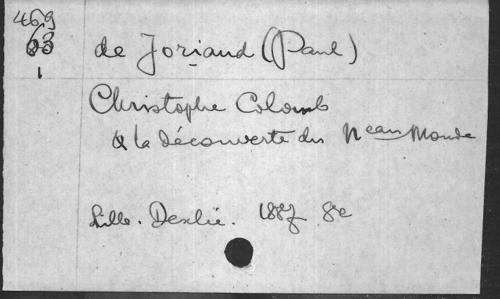 469
63
1
de Joriaud (Paul)
Christophe Colomb
& la découverte du Neau Monde
Lille. Deslie. 1887 8e